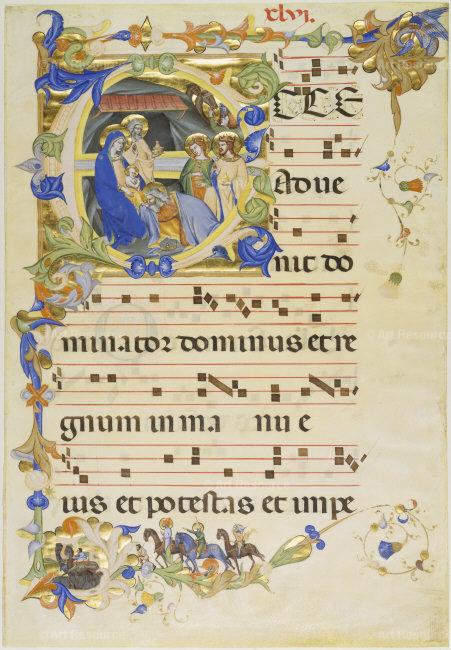 xlvi.
ECCE
Adue
nit do
minator dominus et re
gnum in ma nu e
ius et potestas et impe
© Art Resource